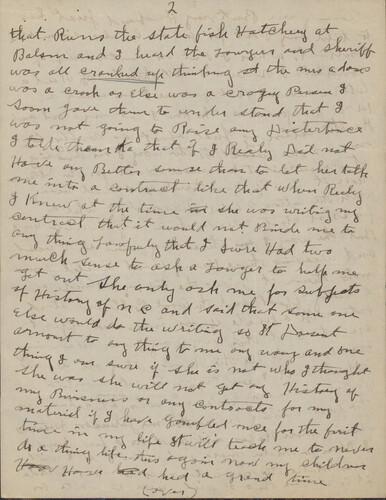 2
that Runs the state fish Hatchery at
Balsm and I heard the Lawyer and Sheriff
was all cranked up thinking the
was a crook or Else was a crazy Person I
soon gave them to under stand that I
was not going to Raise any Disterbence
I told them that if I Realy Did not
Have any Better sense than to let her talk
me into a contract like that When Realy
I Knew at the time she was writing my
contract that it would not Binde me to
any thing Lawfuly that I sure Had two
much sense to ask a Lawyer to help me
get out She only ask me for subjects
of History of N C and said that some one
Else would do the writing so It Dosent
amount to any thing to me any way and one
thing I am sure if she is not who I thought
she was she will not get any History of
my Buisness or any contracts for my
material if I have gambled once for the first
time in my life It will teach me to never
do a thing like this again now my children
Have had a grand time
(over)